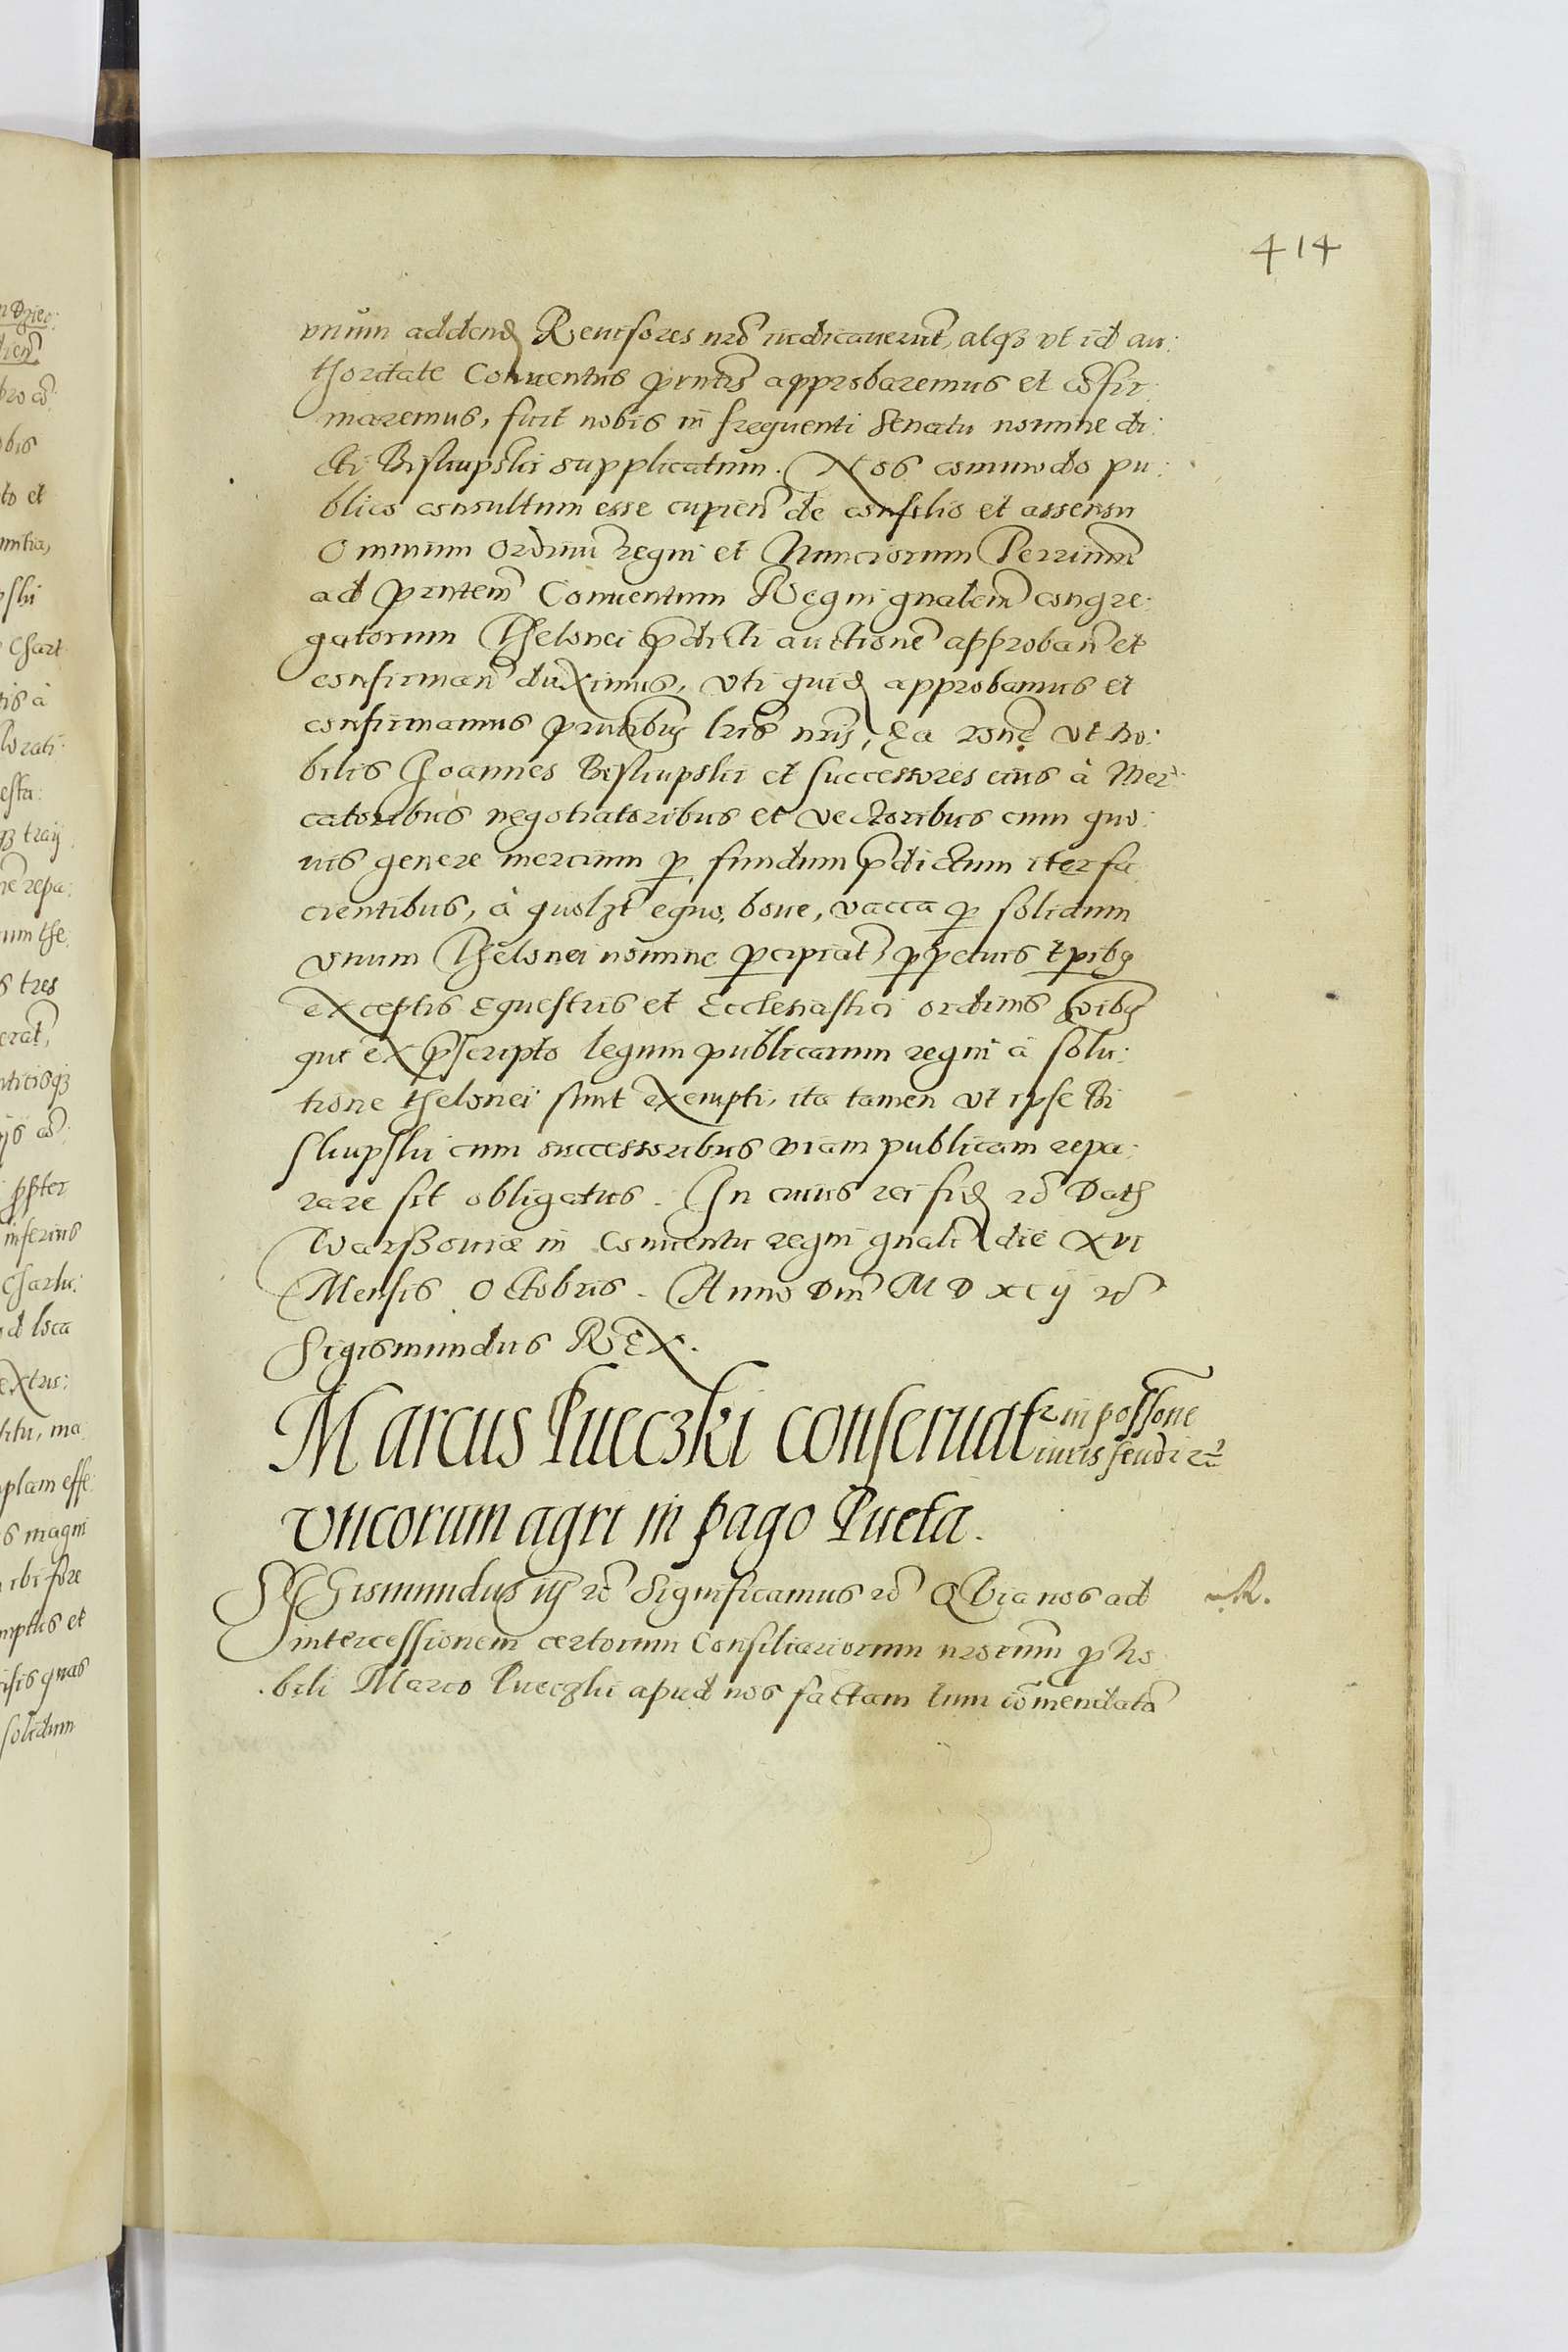 414
vnum addend Reuisores nrõ iudicauerũt, atq₃ vt id au:
thoritate Conuentus prntis approbaremus et cõfir:
maremus, fuit nobis in frequenti Senatu nomine di:
cti Biskupski supplicatum. Nos commodo pu:
blico consultum esse cupien̄ de consilio et assensu
Omnium Ordinũ regni et Nunciorum Terrium
ad prntem Conuentum Regni gnalem congre:
gatorum Thelonei p̄dicti auctionē approban̄ et
confirman̄ duximus, vti quid approbamus et
confirmamus prntibus lris nris, Ea rone vt no:
bilis Joannes Biskupski et successores eius à Mer:
catoribus negotiatoribus et vectoribus cum quo:
uis genere mercium p fundum p̄dictum iter fa:
cientibus, à quolzt equo, boue, vacca p solidum
vnum Thelonei nomine pcipiat, ppetuis tpibus
exceptis Equestris et Ecclesiastici ordinis oibus
qui ex p̄scripto legum publicarum regni à solu:
tione thelonei sunt exempti, ita tamen vt ipse Bi
skupski cum successoribus viam publicam repa:
rare sit obligatus. In cuius rei fid rõ Dat
Warssouiæ in Conuentu regni gnali die XVI
Mensis Octobris. Anno Dm̄ M D XCij rõ
Sigismundus REX.
Marcus Pueczki conseruatr in possone
iuris feudi 2
vncorum agri in pago Pueta.
SIGismundus iij rõ Significamus rõ QVia nos ad
R.
intercessionem certorum Consiliariorum nrorum p No
bili Marco Pueczki apud nos factam tum cõmendatã